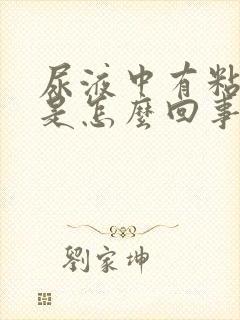 尿液中有粘
是怎麼回事
劉家坤